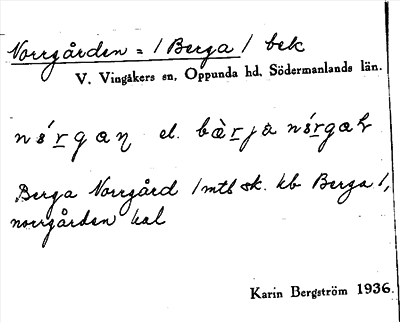 Norrgården = / Berga / bek
V. Vingåkers sn, Oppunda hd, Södermanlands län.
el.
Berga Norrgård / mtb sk. kb Berga /,
norrgården kal
Karin Bergström 1936.